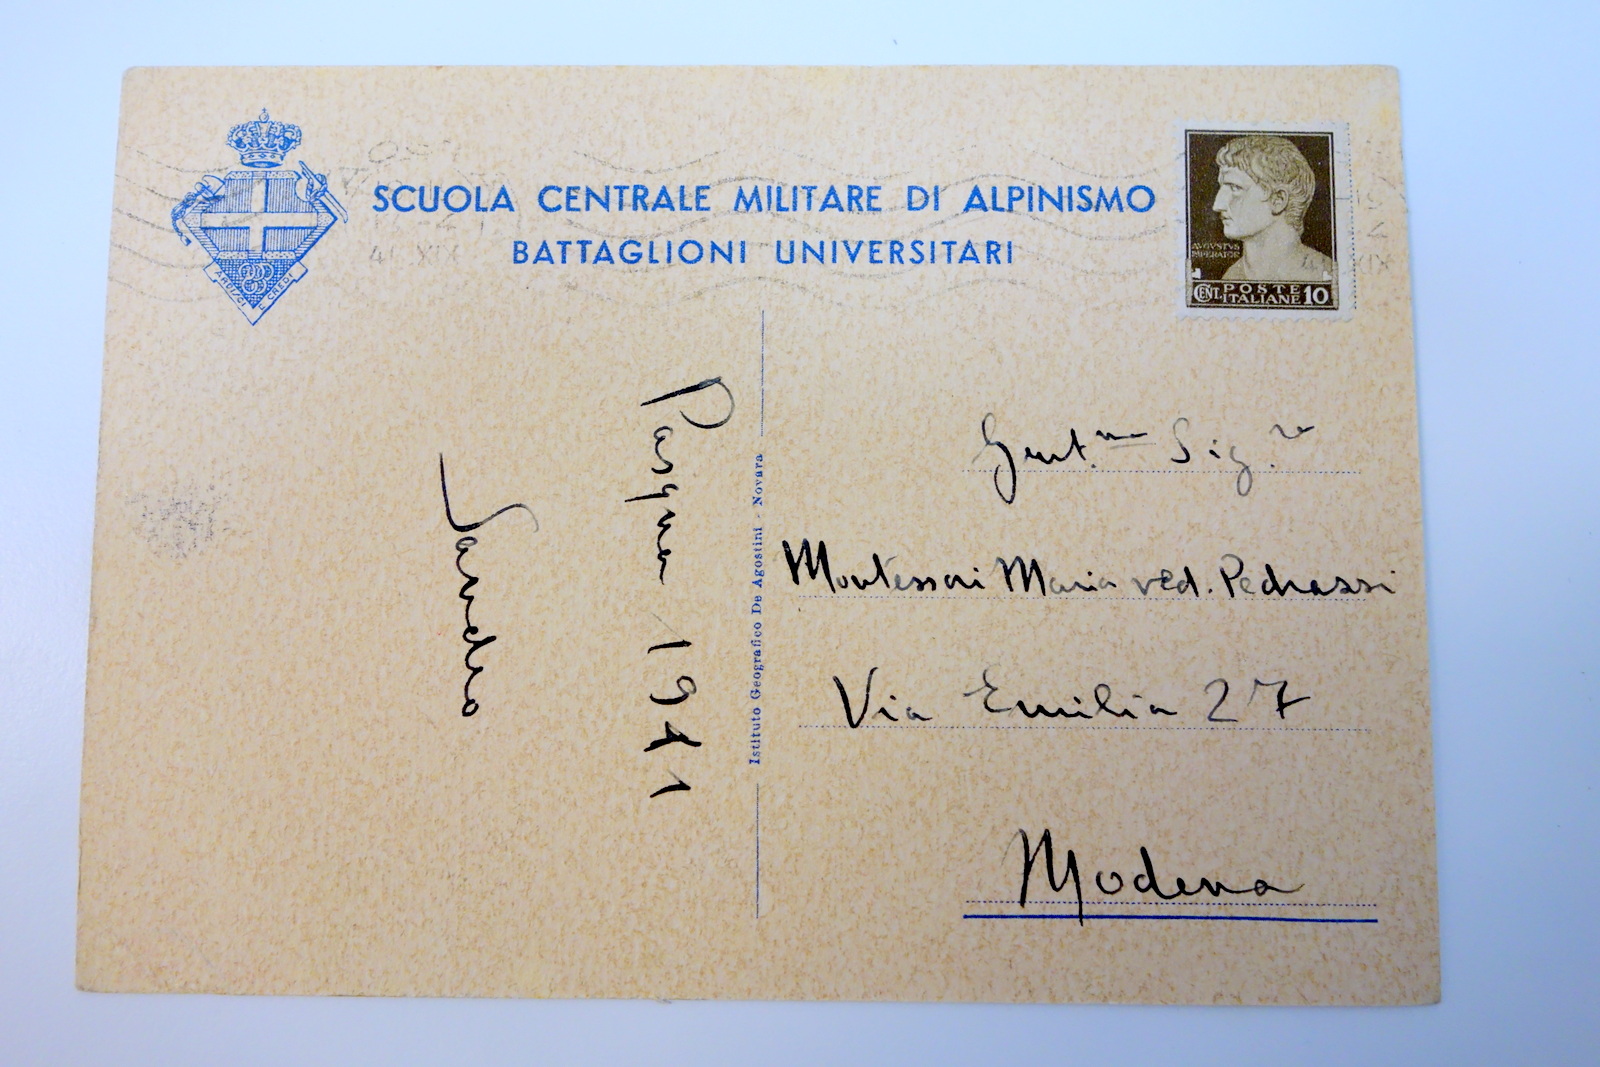 SCUOLA CENTRALE MILITARE DI ALPINISMO
BATTAGLIONI UNIVERSITARI
ARDISCI E CREDI
41 XIX
AVGVSTVS
IMPERATOR
CENT. POSTE ITALIANE 10
Pasqua 1941
Sandro
Istituto Geografico De Agostini - Novara
Gent.ma Sig.ra
Montessori Maria ved. Pedrazzi
Via Emilia 27
Modena